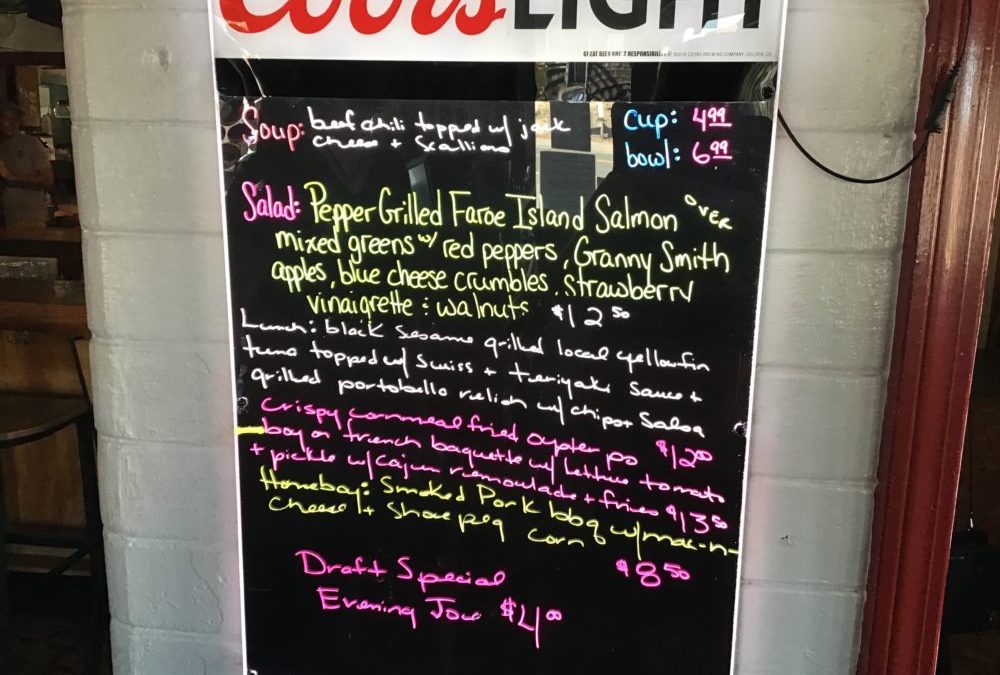 Coors LIGHT
GREAT BEER GREAT RESPONSIBILITY® ©2018 COORS BREWING COMPANY, GOLDEN, CO
Soup: beef chili topped w/ jack
cheese + scallions
Cup: 4.99
bowl: 6.99
Salad: Pepper Grilled Faroe Island Salmon over
mixed greens w/ red peppers, Granny Smith
apples, blue cheese crumbles, strawberry
vinaigrette + walnuts $12.50
Lunch: black sesame grilled local yellowfin
tuna topped w/ Swiss + teriyaki sauce +
grilled portobello relish w/ chips + salsa
$12.00
crispy cornmeal fried oyster po
boy on french baguette w/ lettuce tomato
+ pickle w/ cajun remoulade + fries $13.50
Homeboy: Smoked Pork bbq w/ mac-n-
cheese + shoe peg corn
$8.50
Draft Special
Evening Joe $4.00